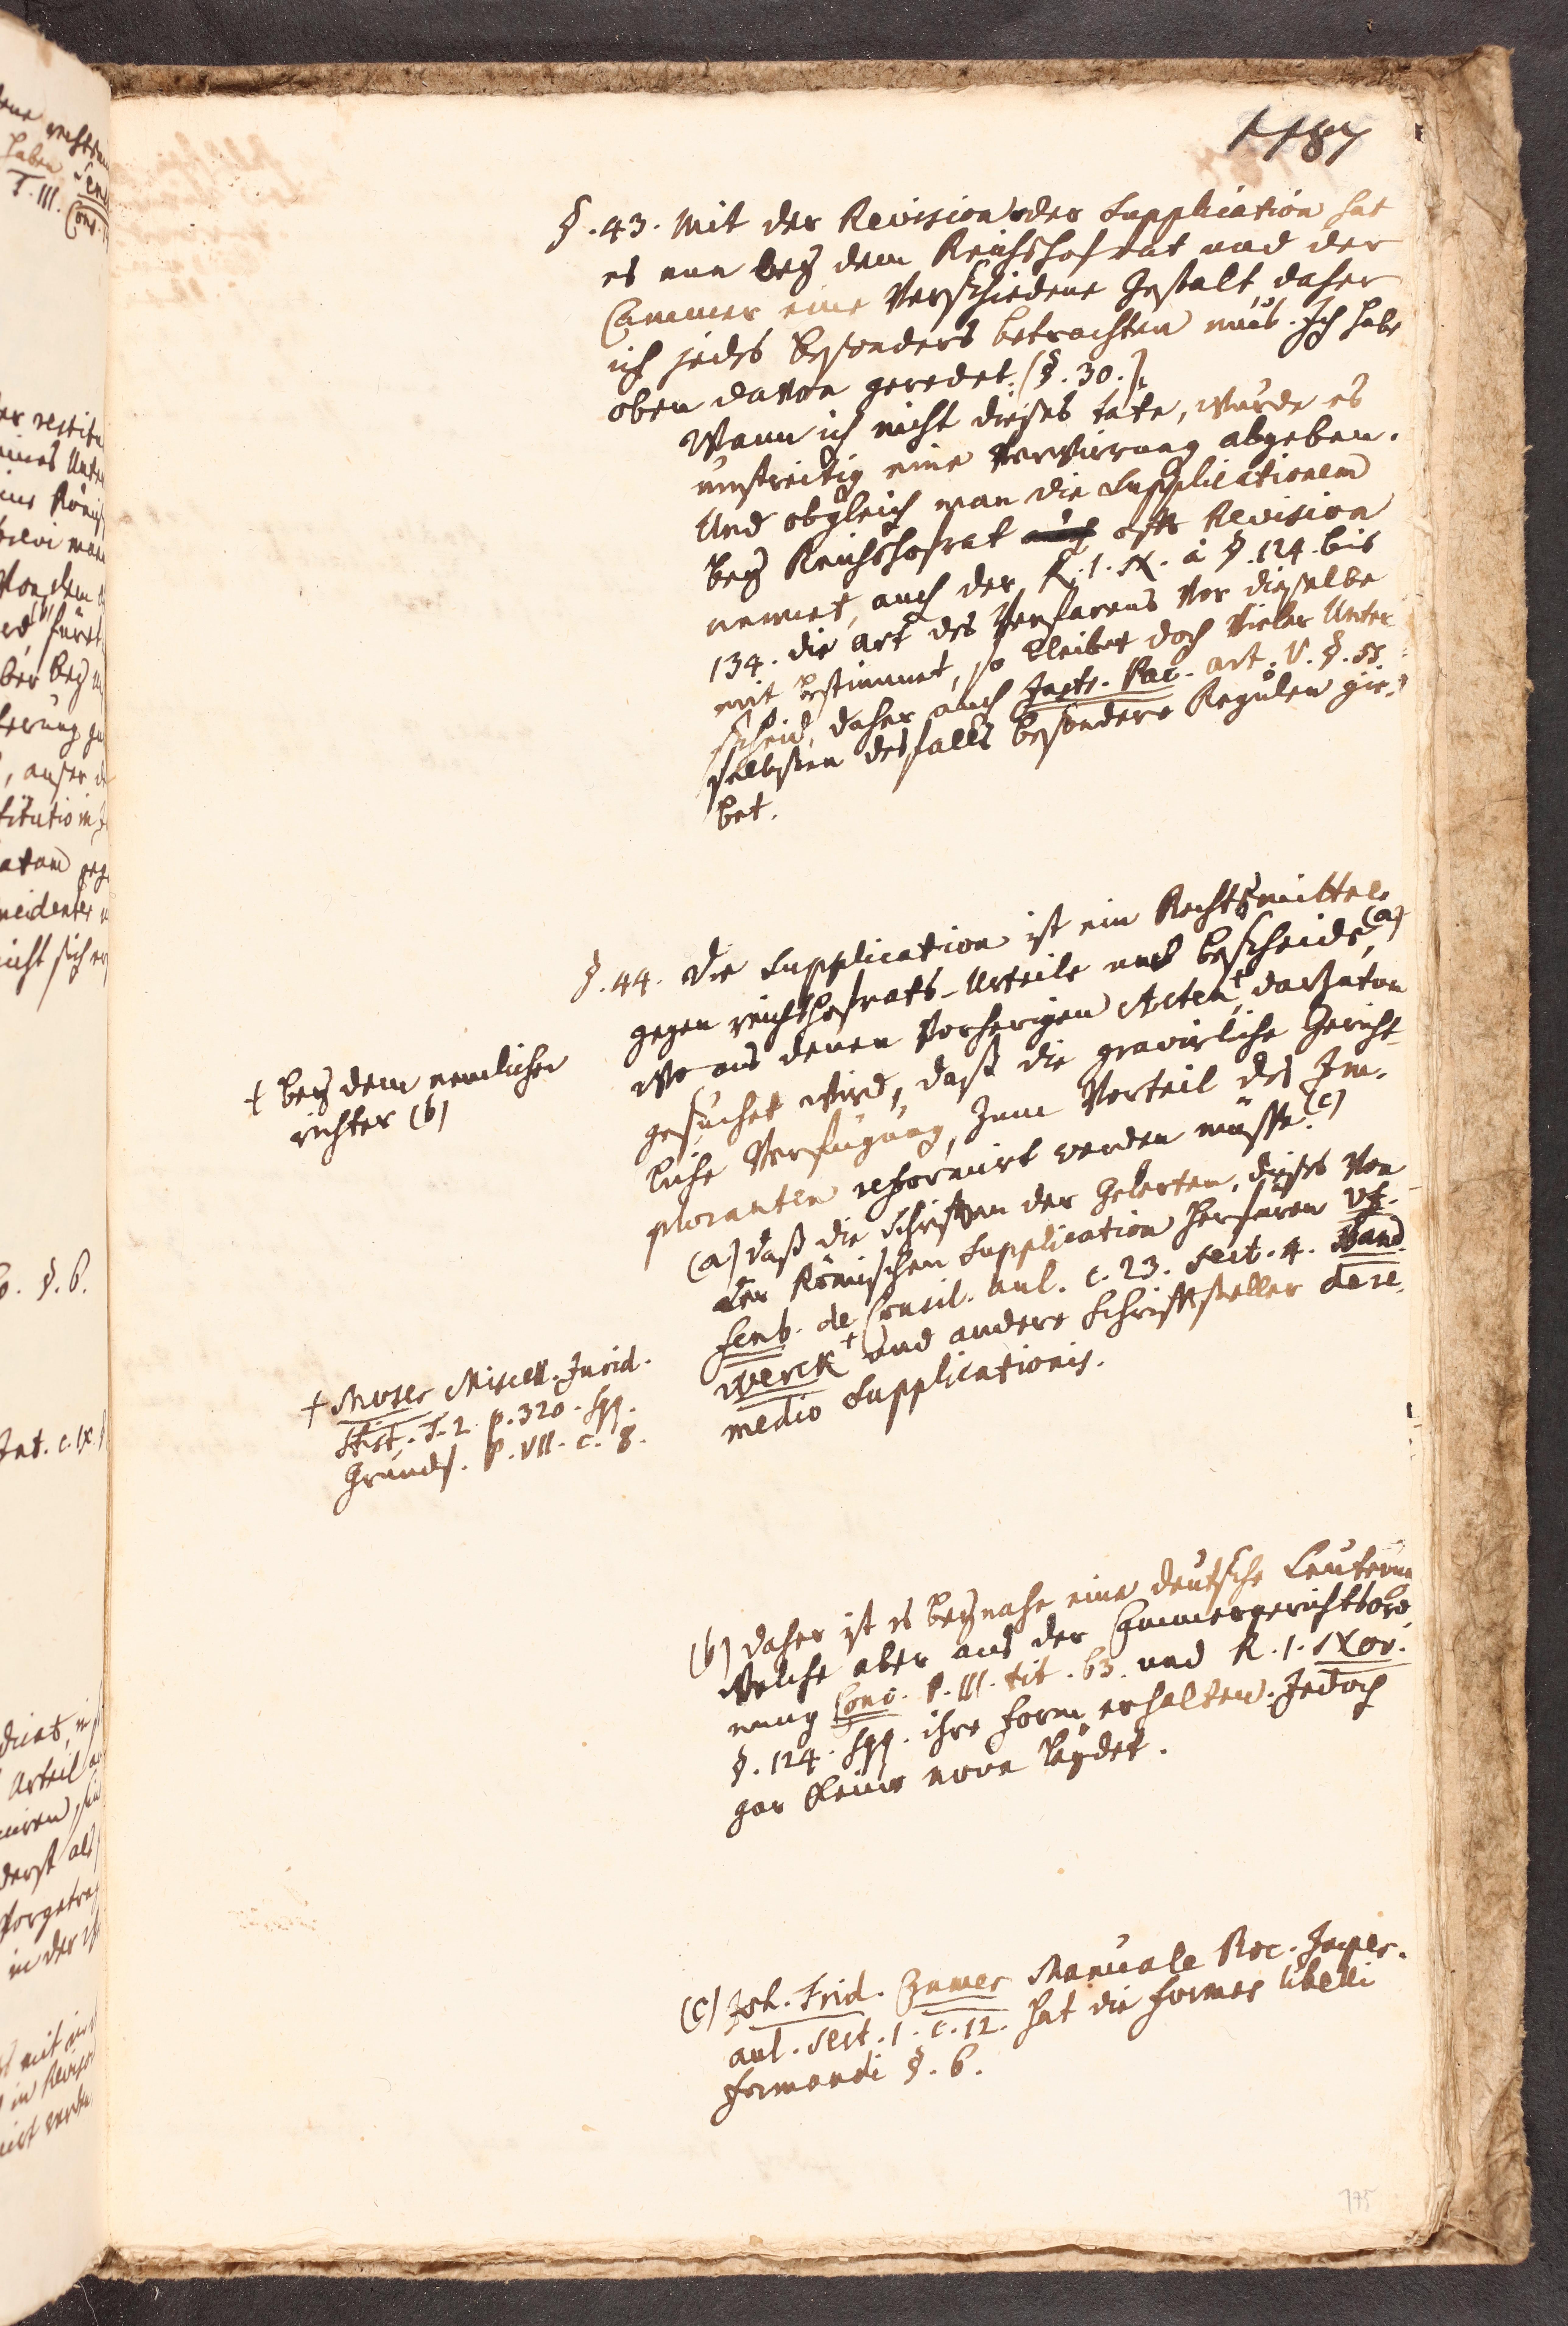 1187
§. 43. Mit der Revision oder Supplication hat
es nun bey dem Reichshofrat und der
Cammer eine verschiedene Gestalt, daher
ich jedes besonders betrachten mus. Ich habe
oben davon geredet. (§. 30.)
Wann ich nicht dieses täte, würde es
unstreitig eine Verwirrung abgeben.
Und obgleich man die Supplicationem
bey Reichshofrat offt Revision
nennet, auch der R. I. N. a §. 124. bis
134. die Art des Verfarens vor dieselbe
mit bestimmet, so bleibet doch vieler Unter-
scheid, daher auch Instr. Pac. art. V. §. 55
selbsten desfalls besondere Regulen gie-
bet.
§. 44. Die Supplication ist ein Rechtsmittel
gegen reichshofrats-Urteile und bescheide, (a)
wo aus denen vorherigen Acten † darzutun
gesuchet wird, daß die gravirliche Gericht-
liche Verfügung, zum Vorteil des Im-
ploranten reformirt werden müsse. (c)
† bey dem nemlichen
richter (b)
(a) daß die Schriften der Gelerten, dieses von
der Römischen Supplication herfüren vf.
Senb. de Consil. aul. c. 23. sect. 4. Band.
werck † und andere Schriftsteller de re-
medio Supplicationis.
† Moser Miscell. Jurid.
Hist. T. 2. p. 320. sqq.
Grunds. P. VII. c. 8.
(b) daher ist es beynahe eine deutsche Leuterung
welche aber aus der Cammergerichtsord-
nung Conc. P. III. tit. 63. und R. I. Nov.
§. 124. sqq. ihre form erhalten. Jedoch
gar keine nova leydet.
(c) Joh. Frid. Cramer Manuale Proc. Imper.
aul. Sect. 1. c. 12. hat die formes libelli
formandi §. 6.
775